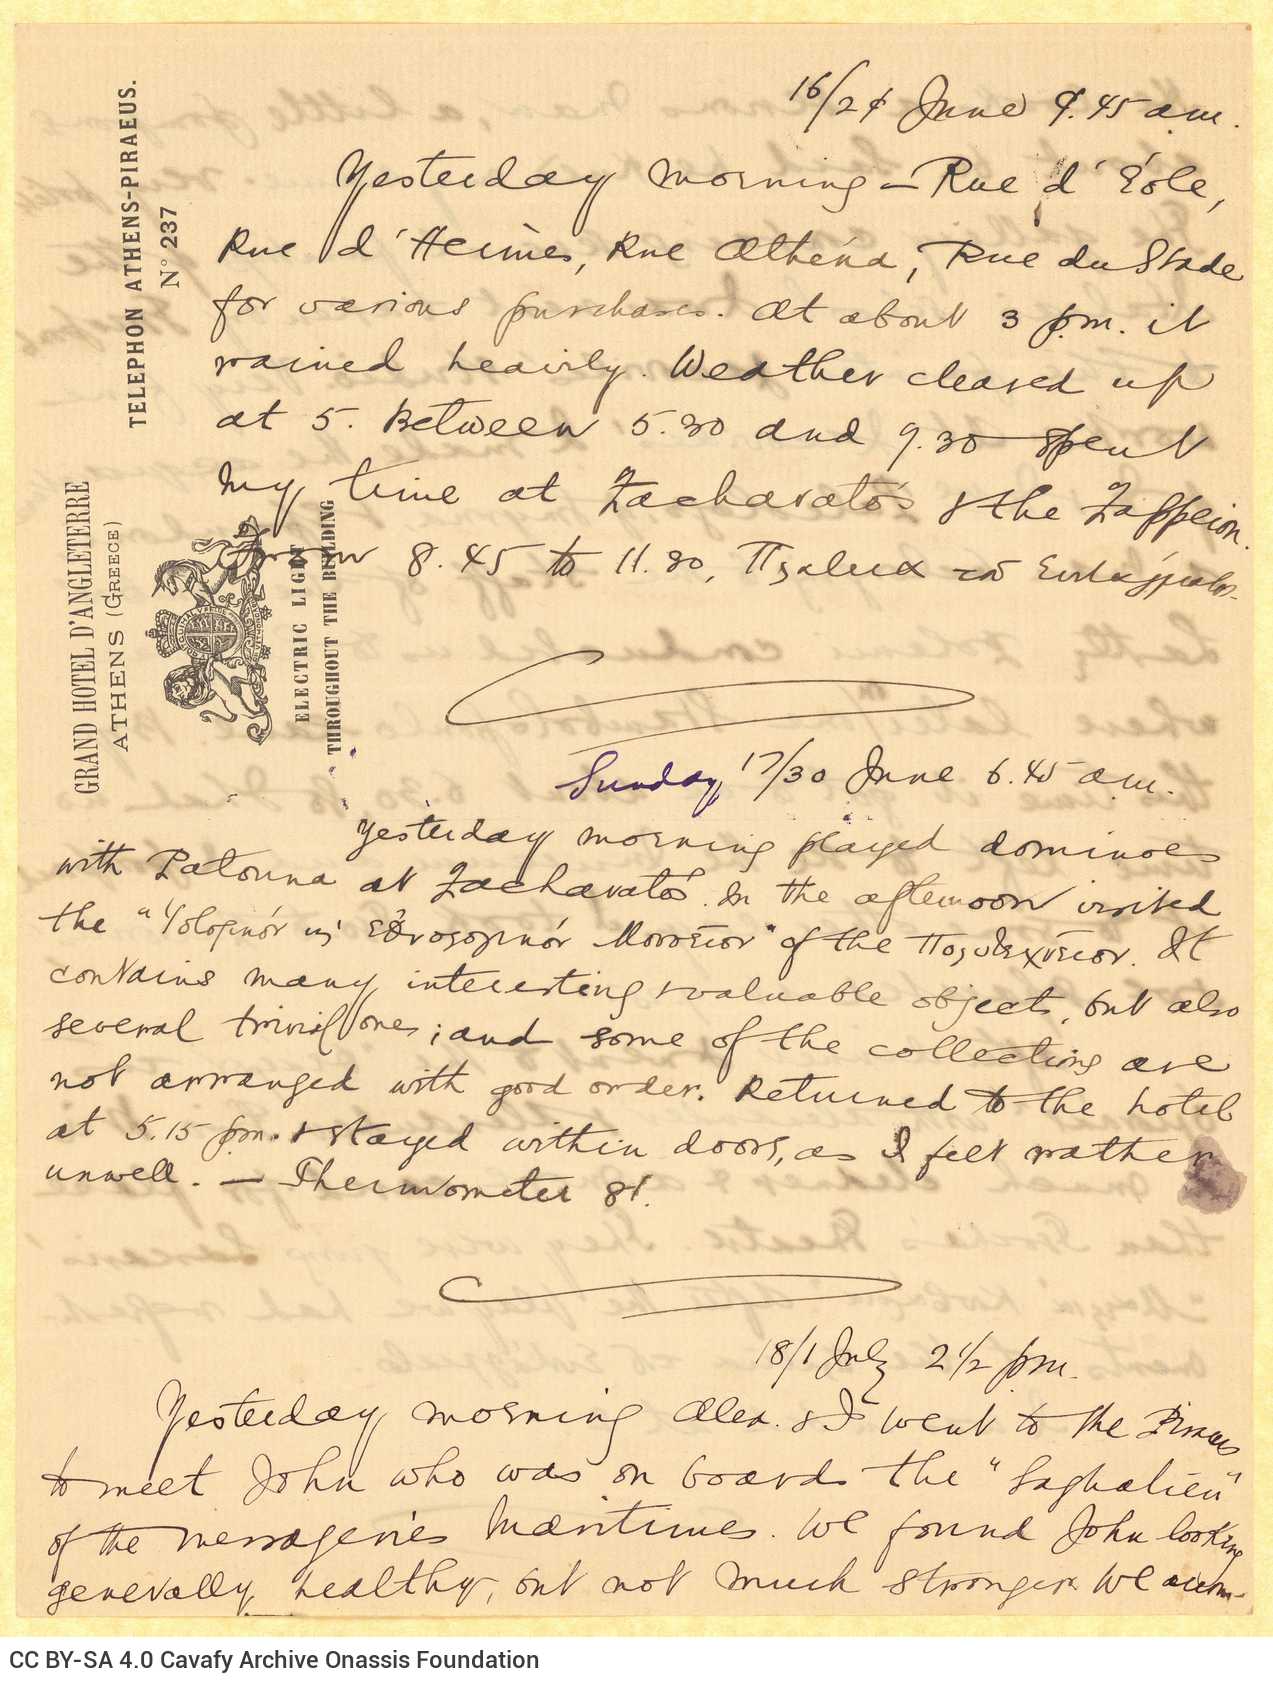 GRAND HOTEL D'ANGLETERRE
ATHENS (GREECE)
TELEPHON ATHENS-PIRAEUS.
N° 237
ELECTRIC LIGHT
THROUGHOUT THE BUILDING
16/29 June 9.45 a.m.
Yesterday morning — Rue d'Éole,
Rue d'Hermès, Rue Athéna, Rue du Stade
for various purchases. At about 3 p.m. it
rained heavily. Weather cleared up
at 5. Between 5.30 and 9.30 spent
my time at Zacharato's & the Zappeion.
From 8.45 to 11.30, Πλατεῖα τοῦ Συντάγματος.
Sunday 17/30 June 6.45 a.m.
Yesterday morning played dominoes
with Patouna at Zacharato's. In the afternoon visited
the "Ἱστορικόν κ' Ἐθνολογικόν Μουσεῖον" of the Πολυτεχνεῖον. It
contains many interesting & valuable objects, but also
several trivial ones; and some of the collections are
not arranged with good order. Returned to the hotel
at 5.15 p.m. & stayed within doors, as I felt rather
unwell. — Thermometer 81.
18/1 July 2 1/2 p.m.
Yesterday morning Alex. & I went to the Piraeus
to meet John who was on board the "Saghalien"
of the Messageries Maritimes. We found John looking
generally healthy, but not much stronger. We accom-
CC BY-SA 4.0 Cavafy Archive Onassis Foundation